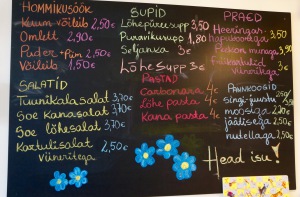 HOMMIKUSÖÖK
Kerum võileib 2,50€
Omlett 2,90€
Puder -piim 2,50€
Võileib 1,50€
SALATID
Tuunikalasalat 3,70€
Soe kanasalat 3,70€
Soe lõhesalat 3,70€
Kartulisalat 2,50€
viineritega
SUPID
Lõhepüreesupp 3,50
Puravikusupp 1,80
Seljanka 3€
Lõhesupp 3€
PASTAD
Carbonara 4€
Lõhe pasta 4€
Kana pasta 4€
PRAED
Heeringas 3,50
hapukoorega
Peekon munaga 3,90
viineritega 3€
PANNKOOGID
singi-juustu 3,50
moosiga 2€
jäätisega 2,50€
nutellaga 2,50€
Head isu!